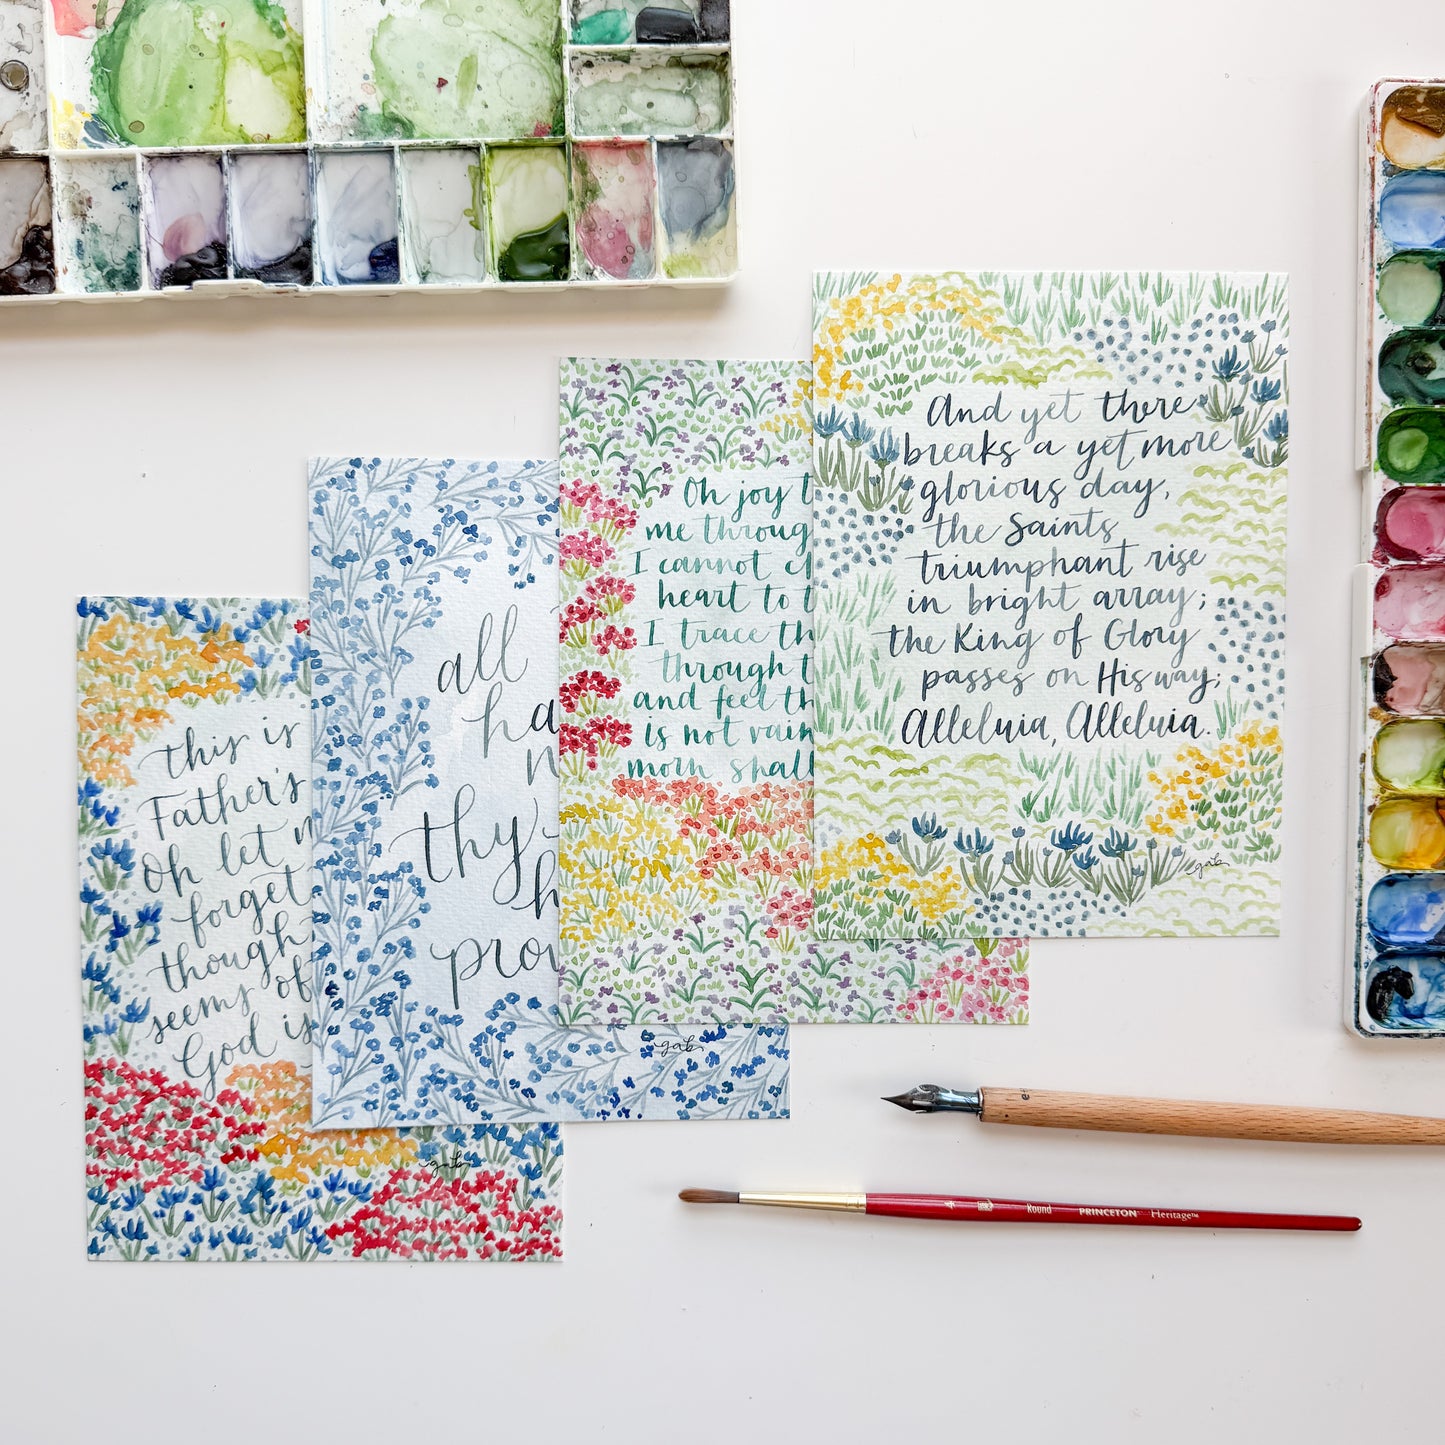 this is
Father's
Oh let
forget
though
seems
God is
gab
all
thy
gab
Oh joy
me throug
I cannot
heart to
I trace
through
and feel
is not vain
morn shall
And yet there
breaks a yet more
glorious day,
the Saints
triumphant rise
in bright array;
the King of Glory
passes on His way;
Alleluia, Alleluia.
gab
4 Round PRINCETON Heritage™